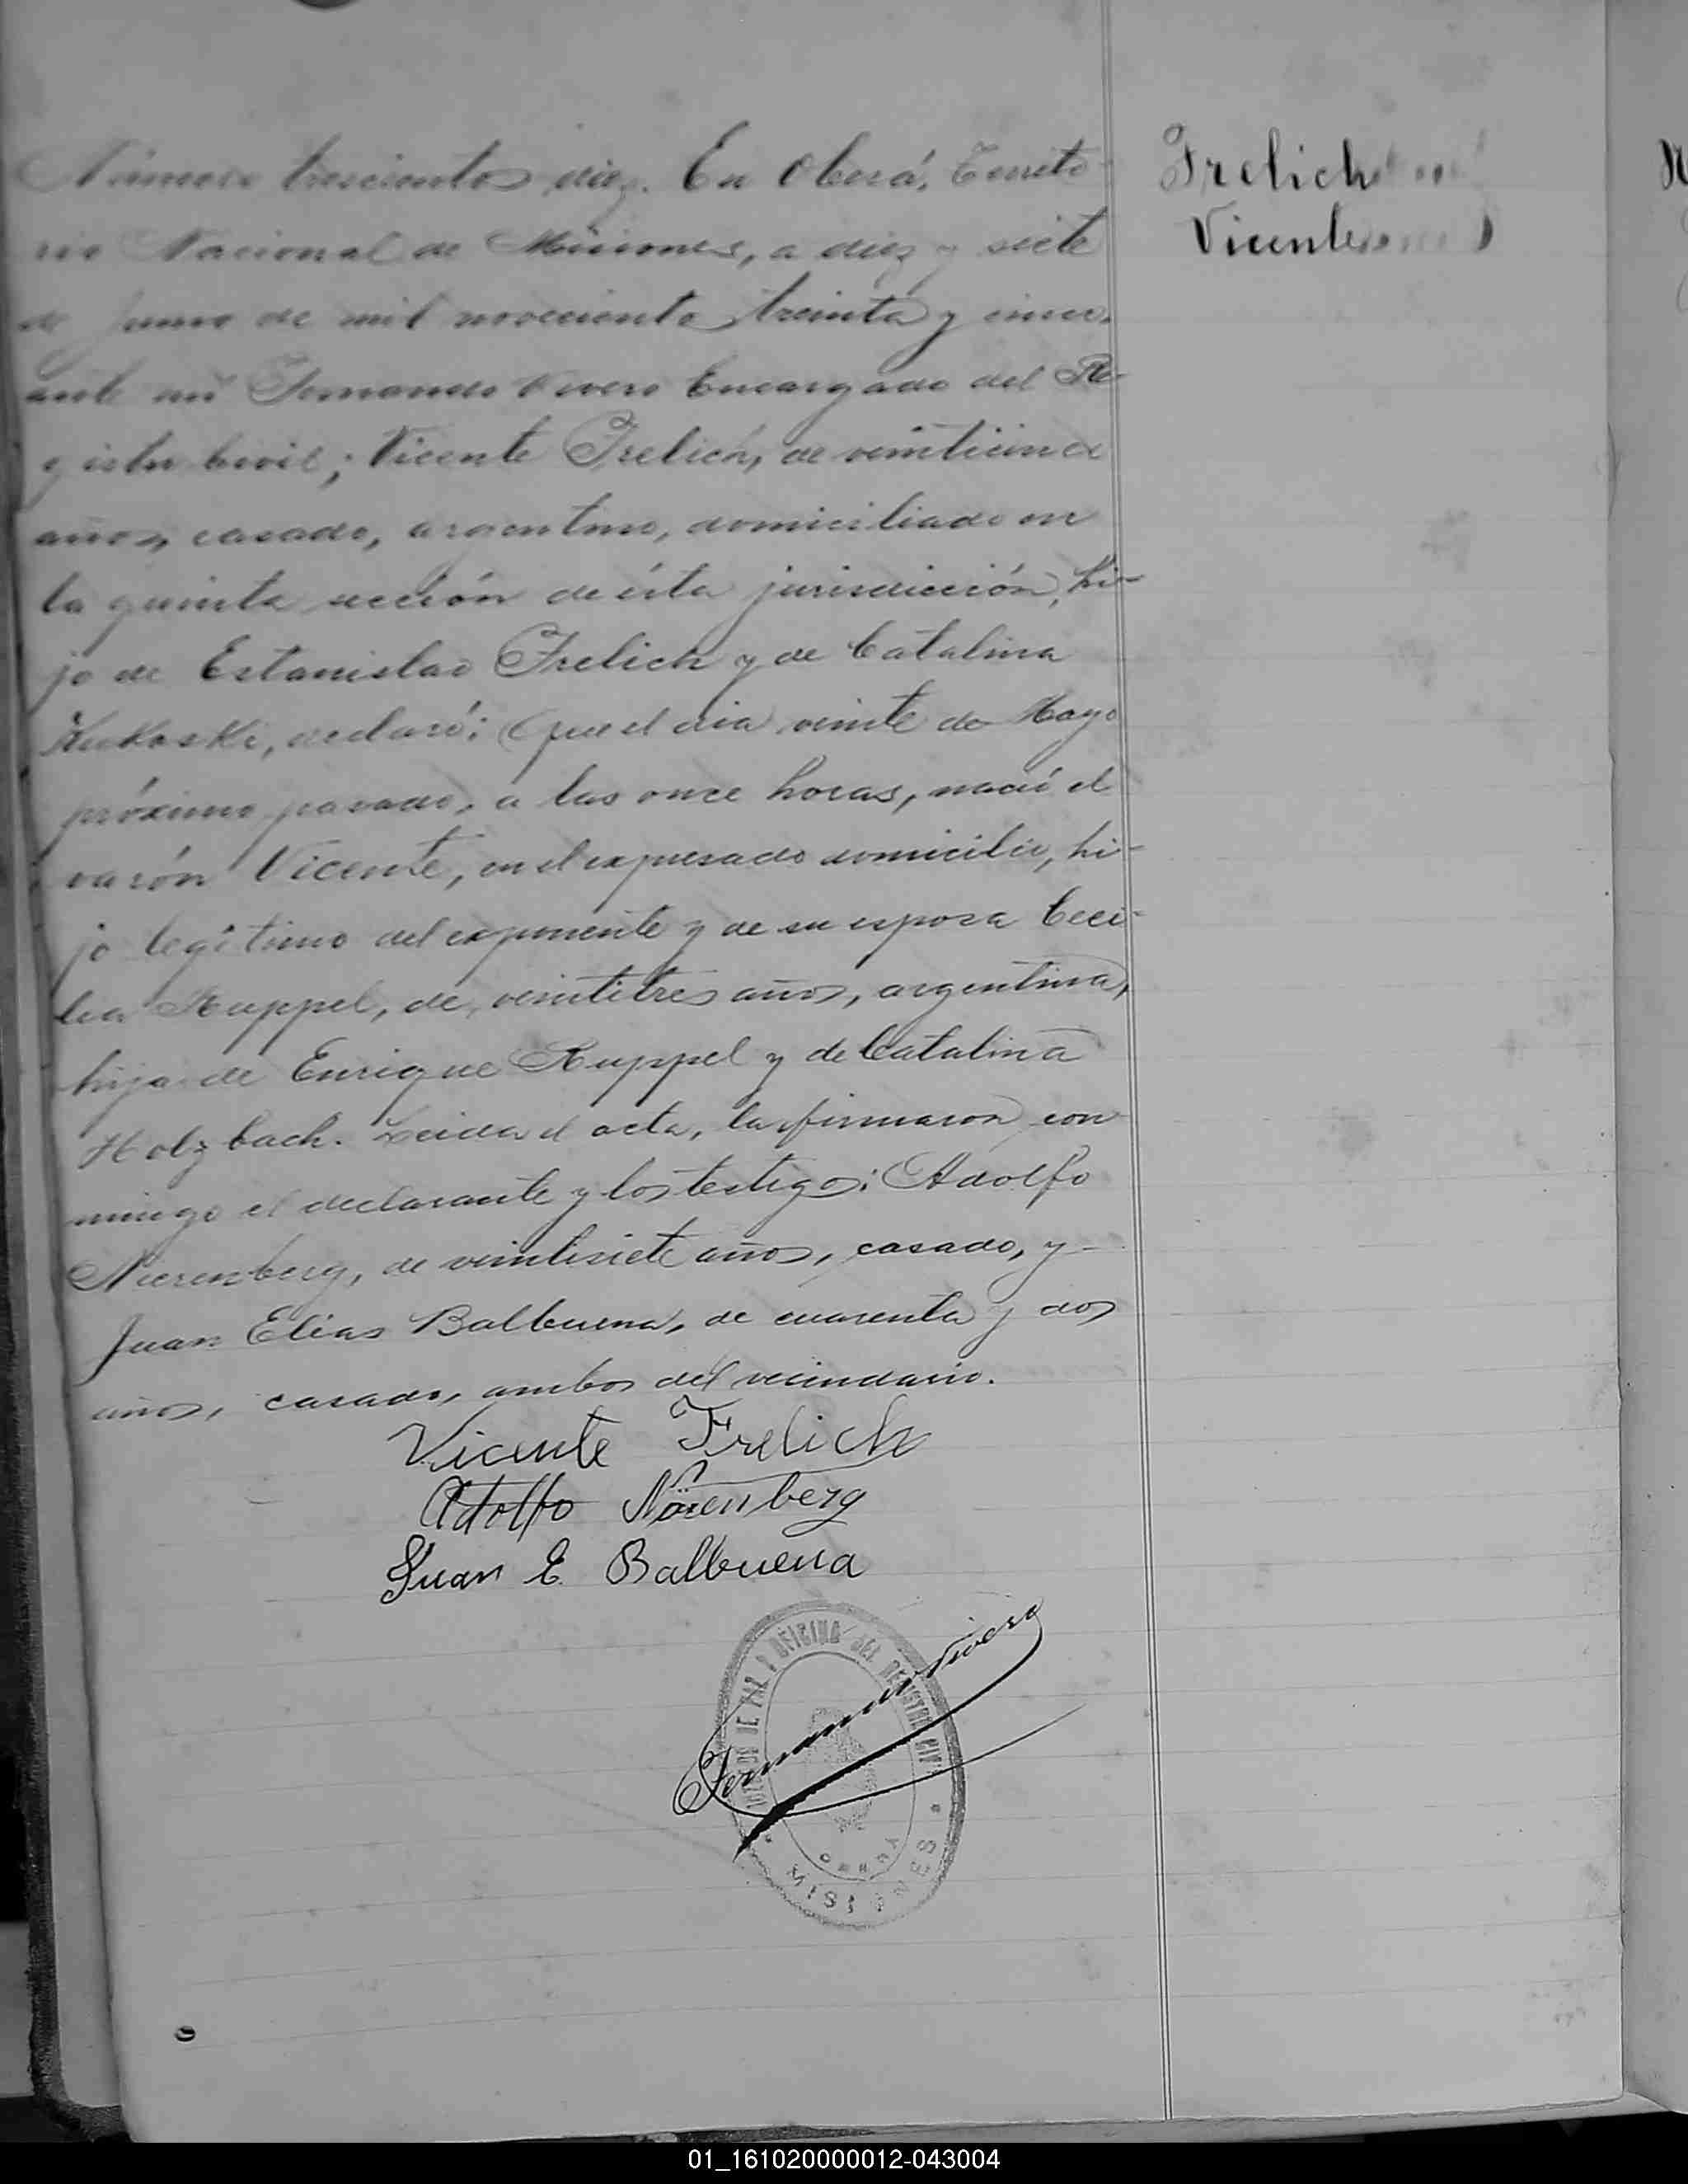 Número trescientos diez. En Oberá, Territo-
rio Nacional de Misiones, a diez y siete
de Junio de mil novecientos treinta y cinco,
ante mí Fernando Vivero Encargado del Re-
gistro Civil; Vicente Frelich, de veinticinco
años, casado, argentino, domiciliado en
la quinta sección de ésta jurisdicción, hi-
jo de Estanislao Frelich y de Catalina
Kukoski, declaró: Que el día veinte de Mayo
próximo pasado, a las once horas, nació el
varón Vicente, en el expresado domicilio, hi-
jo legítimo del exponente y de su esposa Ceci-
lia Ruppel, de veintitrés años, argentina,
hija de Enrique Ruppel y de Catalina
Holzbach. Leida el acta, la firmaron con-
migo el declarante y los testigos: Adolfo
Nierenberg, de veintisiete años, casado, y-
Juan Elias Balbuena, de cuarenta y dos
años, casado, ambos del vecindario.
Vicente Frelich
Adolfo Nörenberg
Juan E. Balbuena
Fernando Vivero
JUZGADO DE PAZ Y OFICINA DEL REGISTRO CIVIL
OBERÁ
MISIONES
Frelich
Vicente
01_161020000012-043004